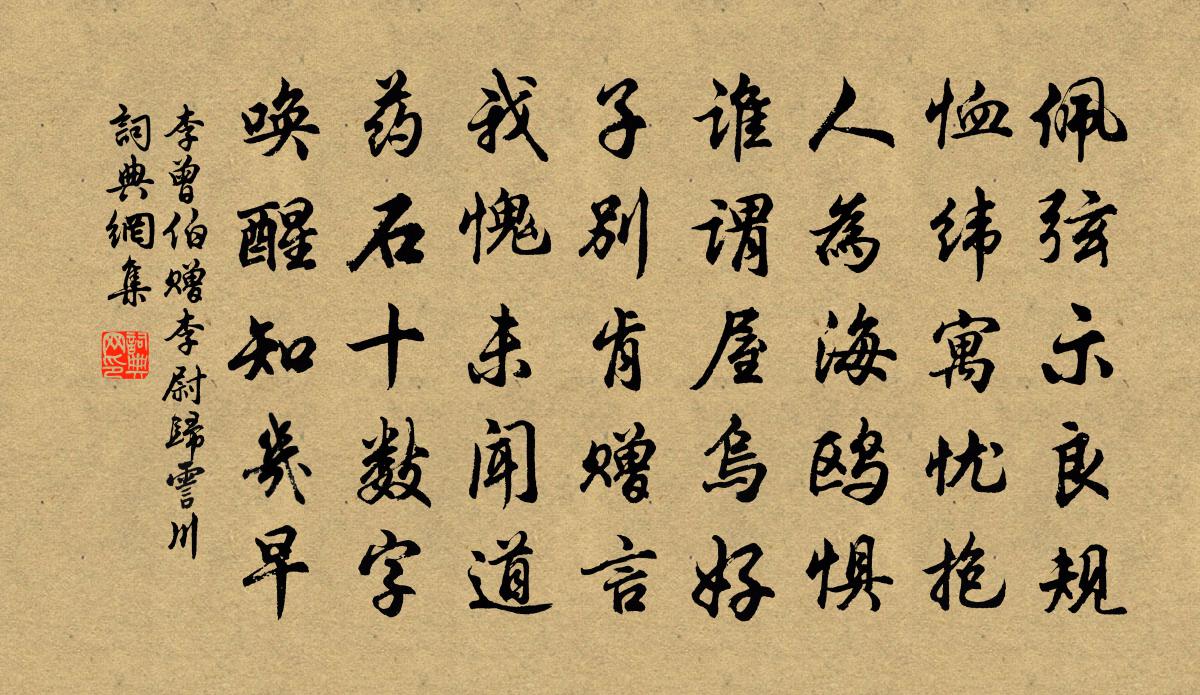 佩弦示良规
恤纬寓忧抱
人為海鸥惧
谁谓屋乌好
子别肯赠言
我愧未闻道
药石十数字
唤醒知几早
李曾伯赠李尉歸霅川
詞典網集
詞典網印